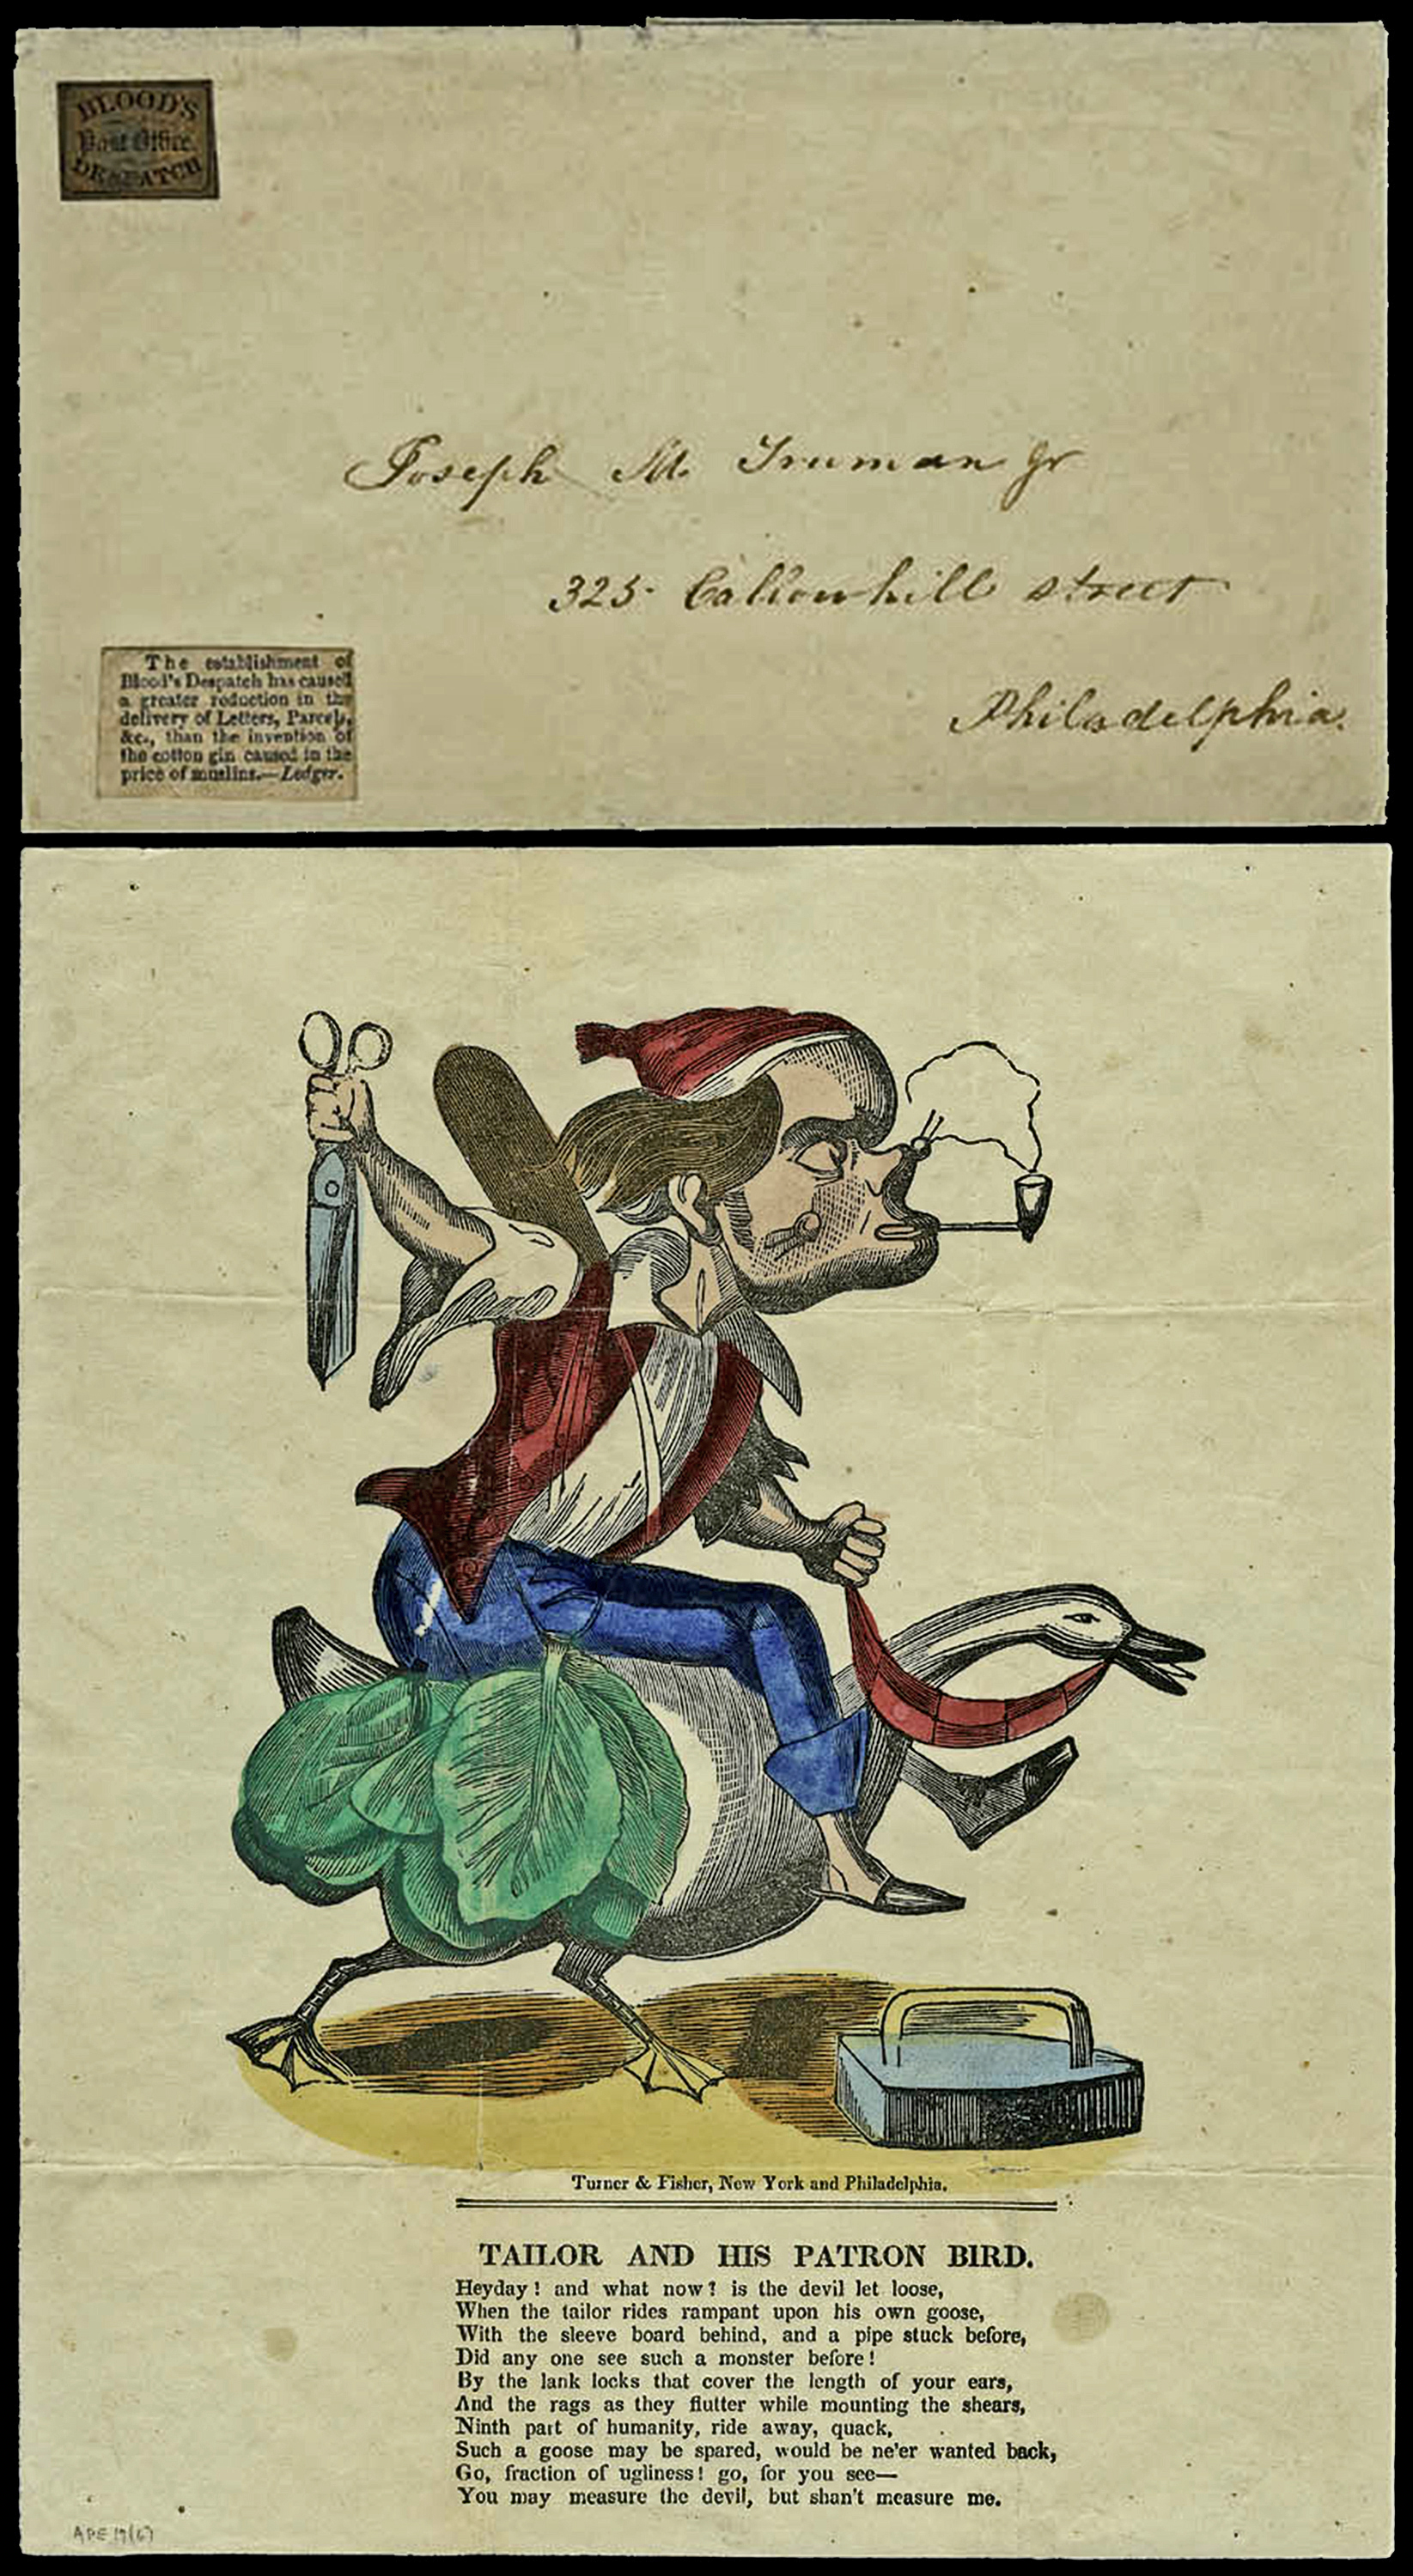 BLOOD'S
Post Office
DESPATCH
Joseph M. Truman Jr
325 Callowhill street
Philadelphia.
The establishment of
Blood's Despatch has caused
a greater reduction in the
delivery of Letters, Parcels,
&c., than the invention of
the cotton gin caused in the
price of muslins.—Ledger.
Turner & Fisher, New York and Philadelphia.
TAILOR AND HIS PATRON BIRD.
Heyday! and what now? is the devil let loose,
When the tailor rides rampant upon his own goose,
With the sleeve board behind, and a pipe stuck before,
Did any one see such a monster before!
By the lank locks that cover the length of your ears,
And the rags as they flutter while mounting the shears,
Ninth part of humanity, ride away, quack,
Such a goose may be spared, would be ne'er wanted back,
Go, fraction of ugliness! go, for you see—
You may measure the devil, but shan't measure me.